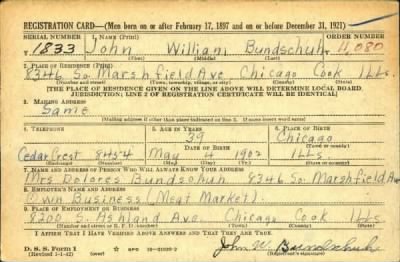 REGISTRATION CARD—(Men born on or after February 17, 1897 and on or before December 31, 1921)
SERIAL NUMBER 1. NAME (Print) ORDER NUMBER
1833 John William Bundschuh 11,080
(First) (Middle) (Last)
2. PLACE OF RESIDENCE (Print)
8346 So. Marshfield Ave. Chicago Cook Ills.
(Number and street) (Town, township, village, or city) (County) (State)
[THE PLACE OF RESIDENCE GIVEN ON THE LINE ABOVE WILL DETERMINE LOCAL BOARD
JURISDICTION; LINE 2 OF REGISTRATION CERTIFICATE WILL BE IDENTICAL]
3. MAILING ADDRESS
Same
[Mailing address if other than place indicated on line 2. If same insert word same]
4. TELEPHONE 5. AGE IN YEARS 6. PLACE OF BIRTH
39 Chicago
DATE OF BIRTH
Cedarcrest 8454 May 4 1902 Ills
(Exchange) (Number) (Mo.) (Day) (Yr.) (State or country)
7. NAME AND ADDRESS OF PERSON WHO WILL ALWAYS KNOW YOUR ADDRESS
Mrs Dolores Bundschuh 8346 So. Marshfield Ave
8. EMPLOYER'S NAME AND ADDRESS
Own Business (Meat Market)
9. PLACE OF EMPLOYMENT OR BUSINESS
8300 S. Ashland Ave. Chicago Cook Ills
(Number and street or R. F. D. number) (Town) (County) (State)
I AFFIRM THAT I HAVE VERIFIED ABOVE ANSWERS AND THAT THEY ARE TRUE.
D. S. S. Form 1
(Revised 1-1-42) (over) John W. Bundschuh